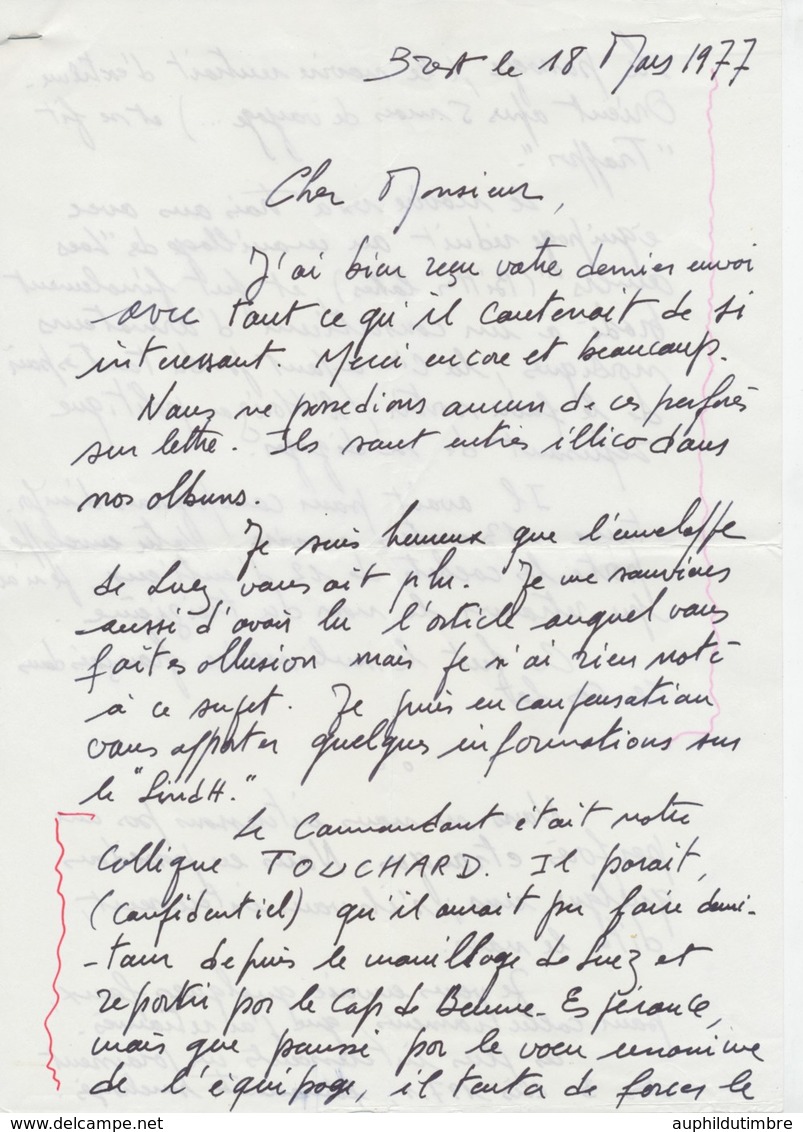 Brest le 18 Mars 1977
Cher Monsieur,
J'ai bien reçu votre dernier envoi
avec tout ce qu'il contenait de si
interessant. Merci encore et beaucoup.
Nous ne possedions aucun de ces perforés
sur lettre. Ils sont entrés illico dans
nos albums.
Je suis heureux que l'enveloppe
de Suez vous ait plu. Je me souviens
aussi d'avoir lu l'article auquel vous
faites allusion mais je n'ai rien noté
à ce sujet. Je puis en compensation
vous apporter quelques informations sur
le "Sindh."
Le Commandant était notre
Collègue TOUCHARD. Il parait,
(confidentiel) qu'il aurait pu faire demi-
-tour depuis le mouillage de Suez et
repartir par le Cap de Bonne-Espérance,
mais que poussé par le voeu unanime
de l'équipage, il tenta de forcer le
auphildutimbre